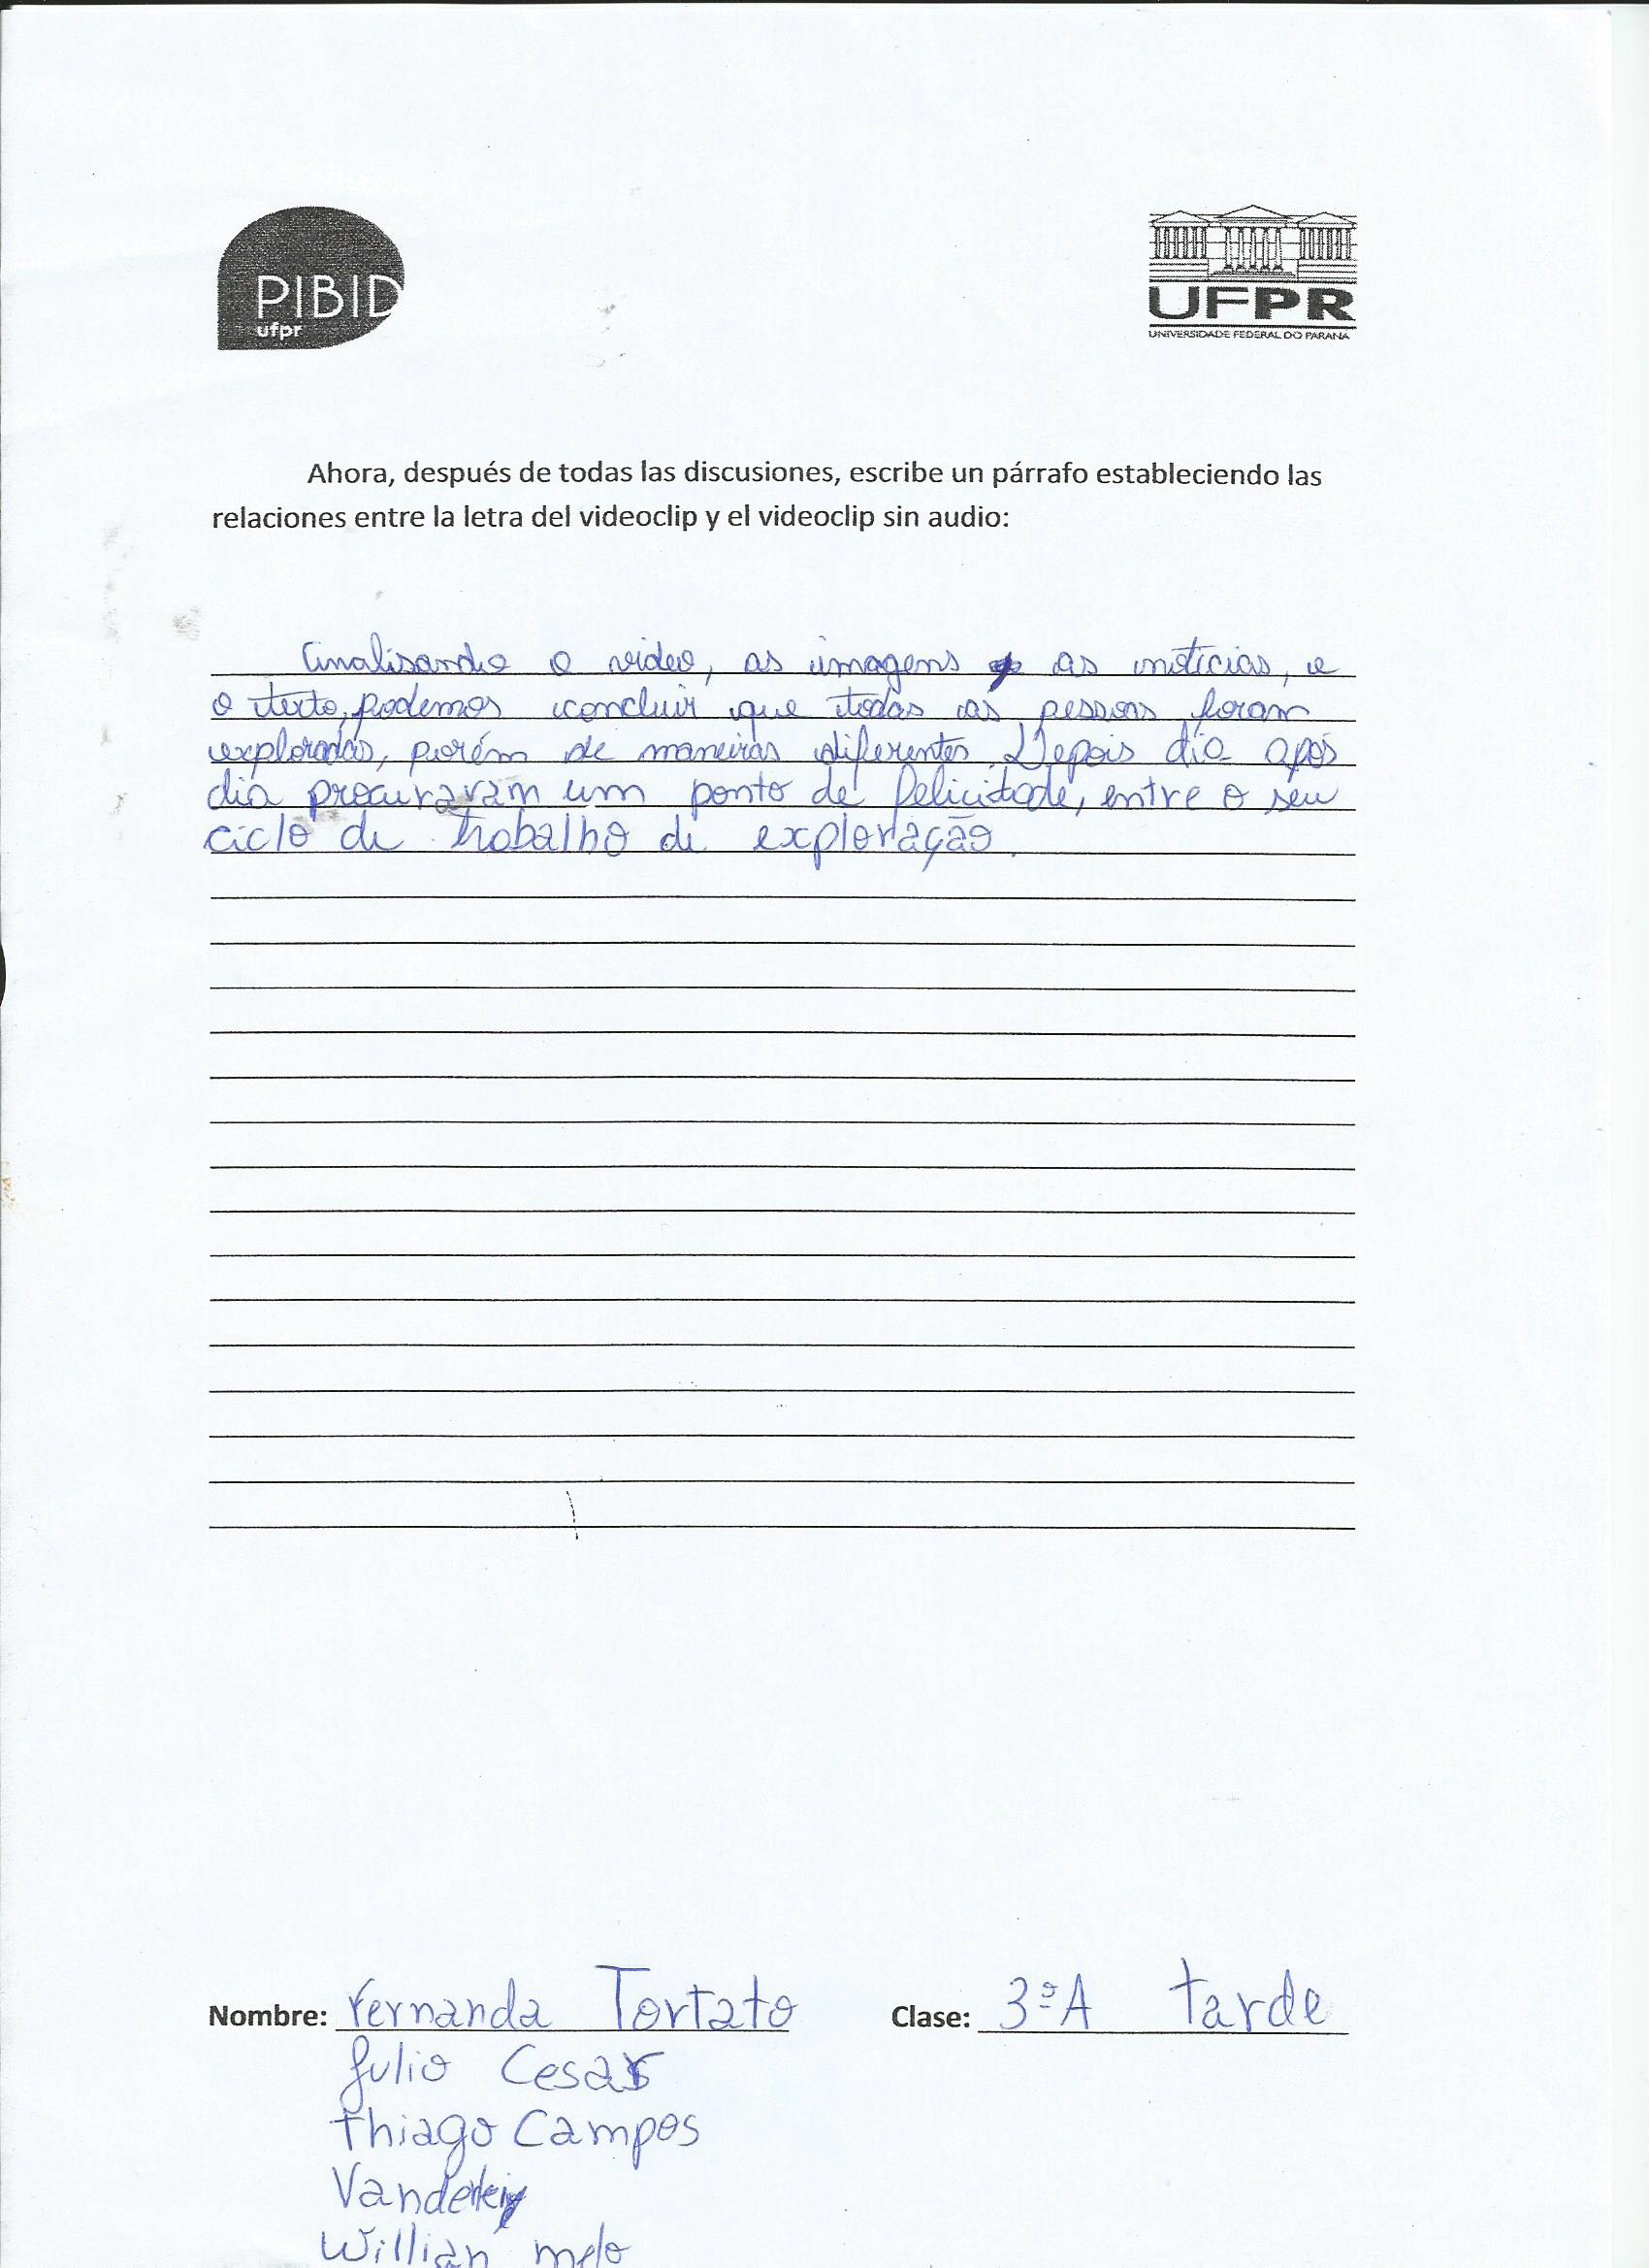 PIBID
ufpr
UFPR
UNIVERSIDADE FEDERAL DO PARANÁ
Ahora, después de todas las discusiones, escribe un párrafo estableciendo las
relaciones entre la letra del videoclip y el videoclip sin audio:
Analisando o video, as imagens as notícias, e
o texto, podemos concluir que todas as pessoas foram
exploradas, porém de maneiras diferentes. Depois dia após
dia procuravam um ponto de felicidade, entre o seu
ciclo de trabalho de exploração.
Nombre: Fernanda Tortato Clase: 3ºA tarde
Julio Cesar
Thiago Campos
Willian melo